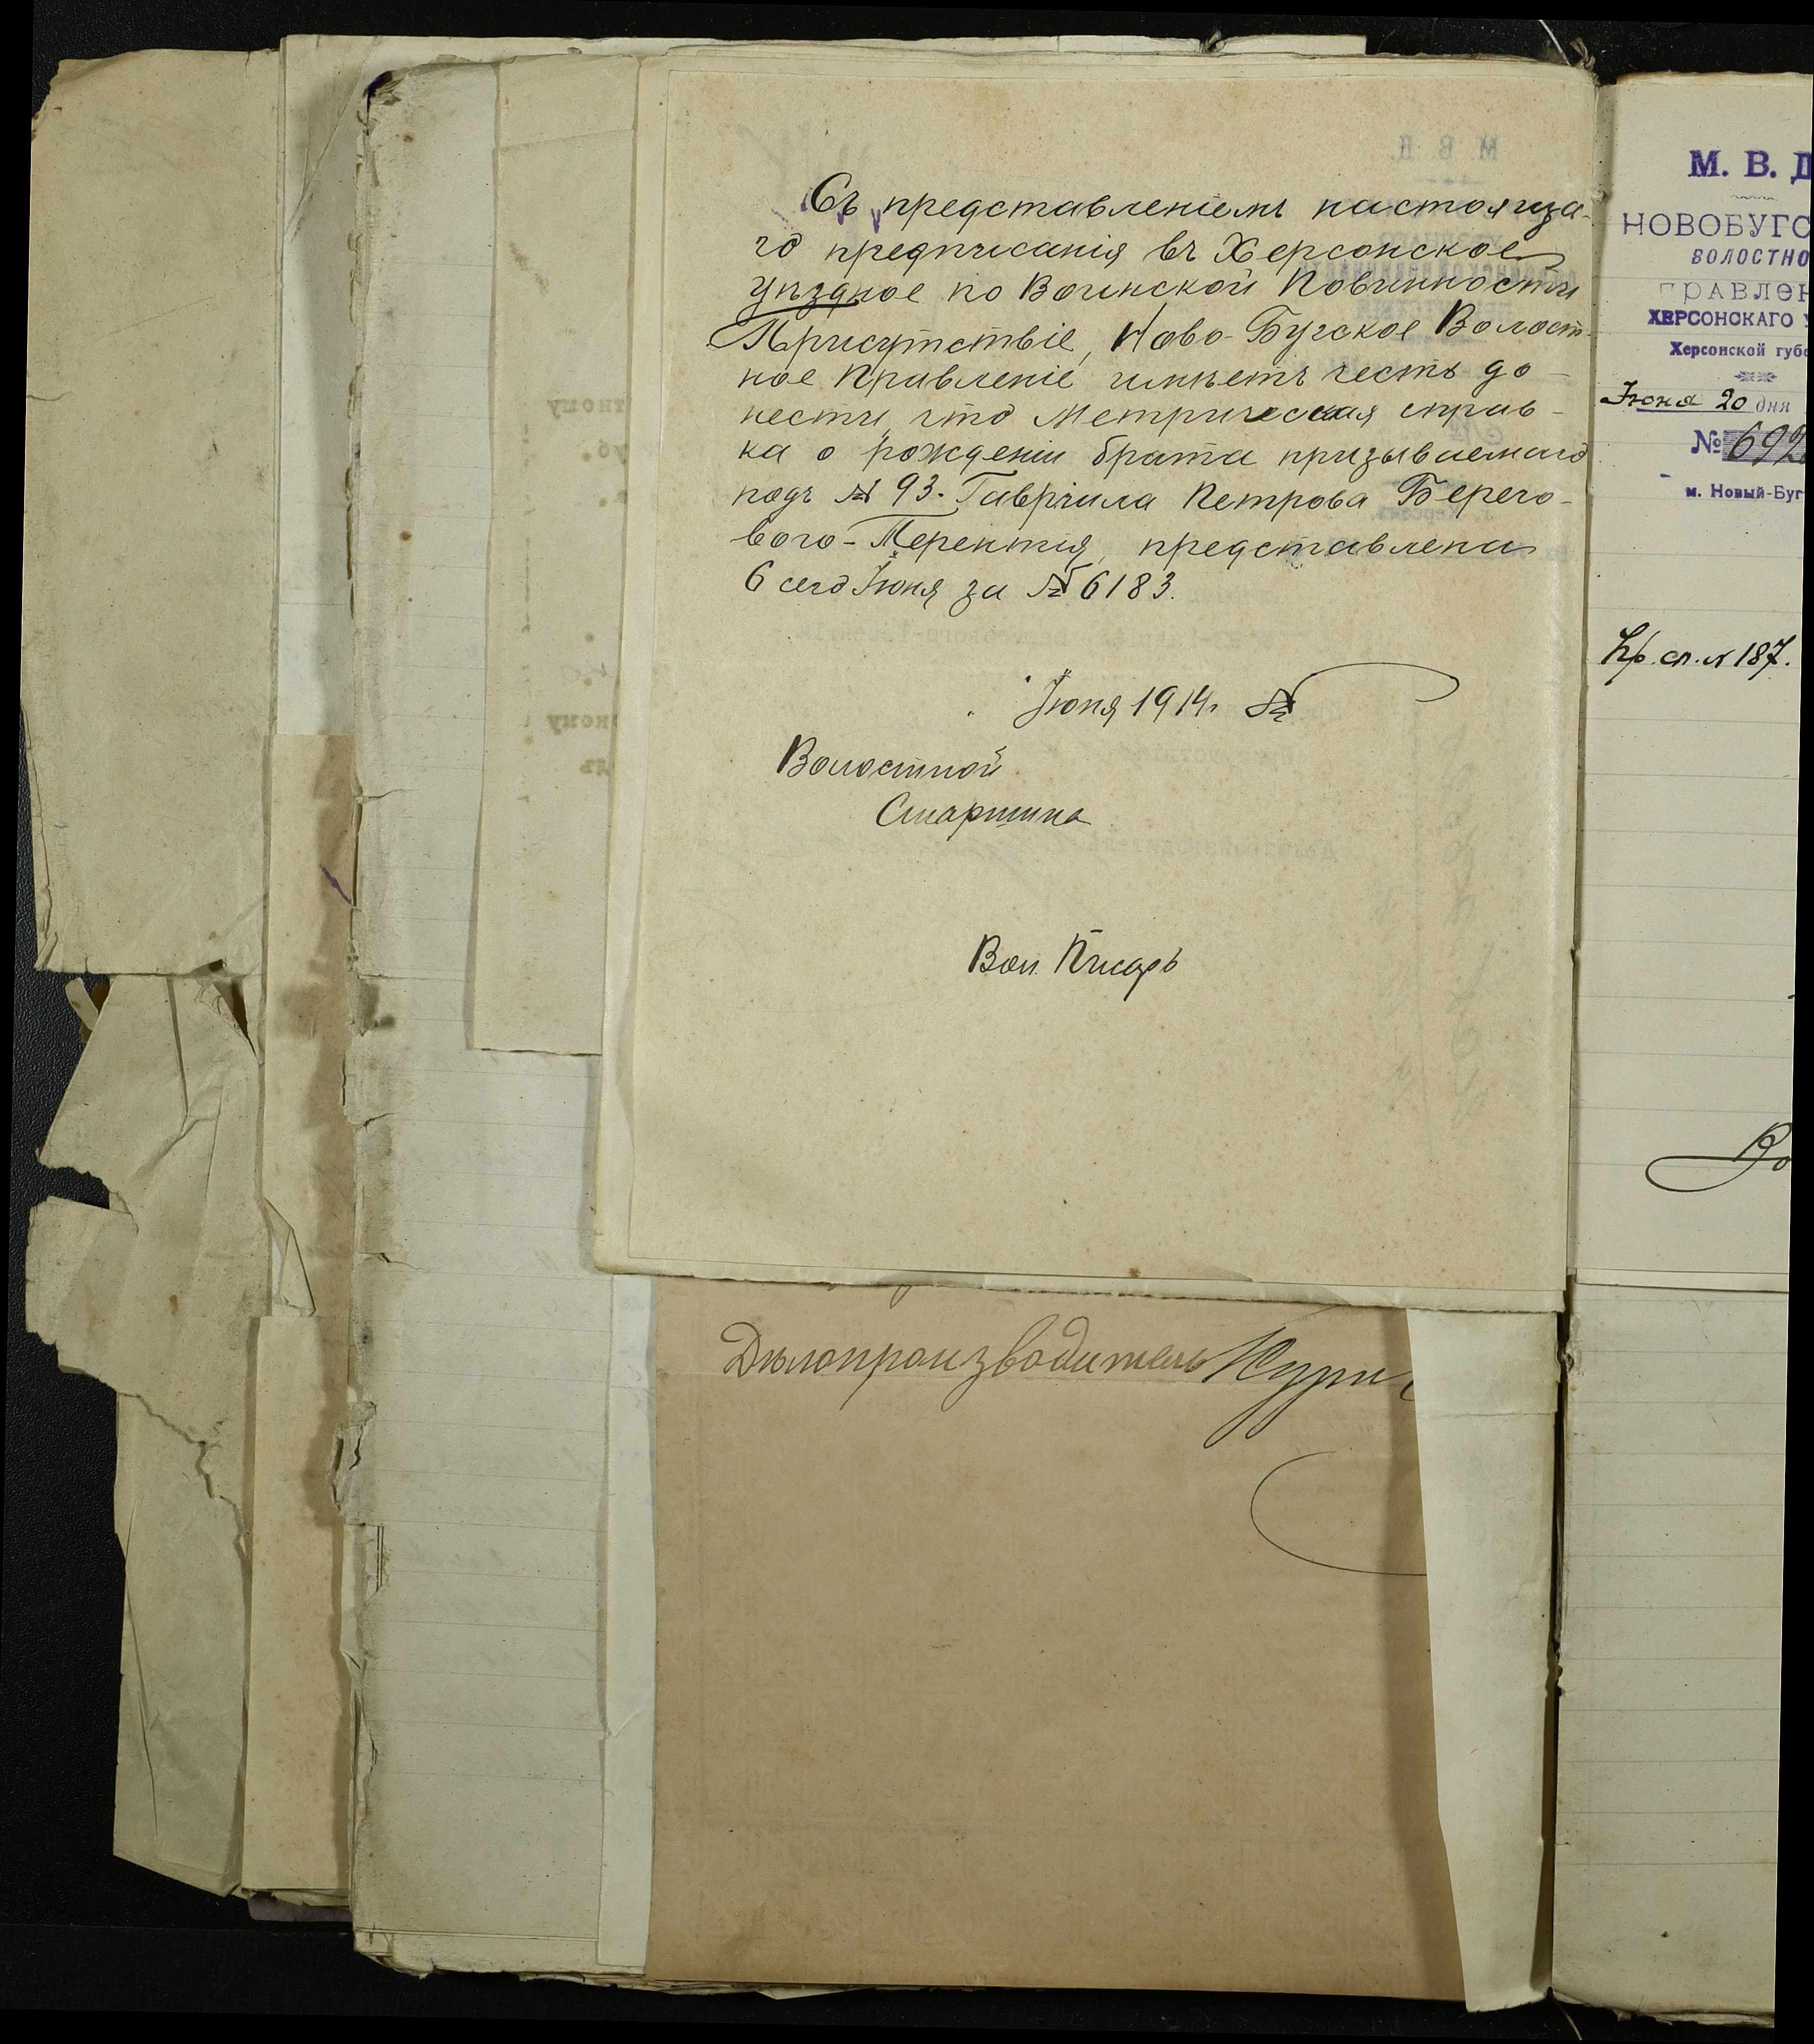 Съ представленіемъ настояща-
го предписанія въ Херсонское
Уѣздное по Воинской Повинности
Присутствіе, Ново-Бугское Волост-
ное Правленіе имѣетъ честь до-
нести, что Метрическая справ-
ка о рожденіи брата призываемаго
подъ № 93. Гавріила Петрова Берего-
вого-Терентія, представлена
6 сего Іюня за № 6183.
Іюня 1914 г. №
Волостной
Старшина
Вол. Писарь
Дѣлопроизводитель
М. В. Д
НОВОБУГС
ВОЛОСТНО
ПРАВЛЕН
ХЕРСОНСКАГО У
Херсонской губе
Іюня 20 дня
№ 692
м. Новый-Буг
пр. сп. № 187.
Во